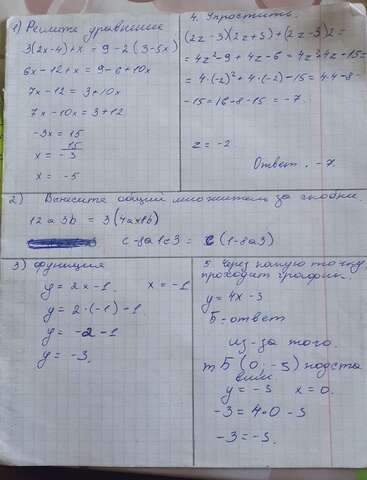 1) Решите уравнение
3(2x-4)+x = 9-2(3-5x)
6x-12+x = 9-6+10x
7x-12 = 3+10x
7x-10x = 3+12
-3x = 15
x = 15/-3
x = -5
4. Упростить.
(2z-3)(2z+3)+(2z-3)2=
=4z²-9+4z-6=4z²+4z-15=
=4·(-2)²+4·(-2)-15=4·4-8-
-15=16-8-15=-7.
z = -2
Ответ. -7.
2) Внесите общий множитель за скобки.
12a 3b = 3(4a+1b)
c-8a1c3 = c(1-8a3)
3) функция
y = 2x-1. x = -1
y = 2·(-1)-1.
y = -2-1
y = -3.
5. Через какую точку
проходит график.
y = 4x-3
Б-ответ
из-за того.
т Б (0; -3) подста
вим
y = -3 x = 0.
-3 = 4·0-3
-3 = -3.